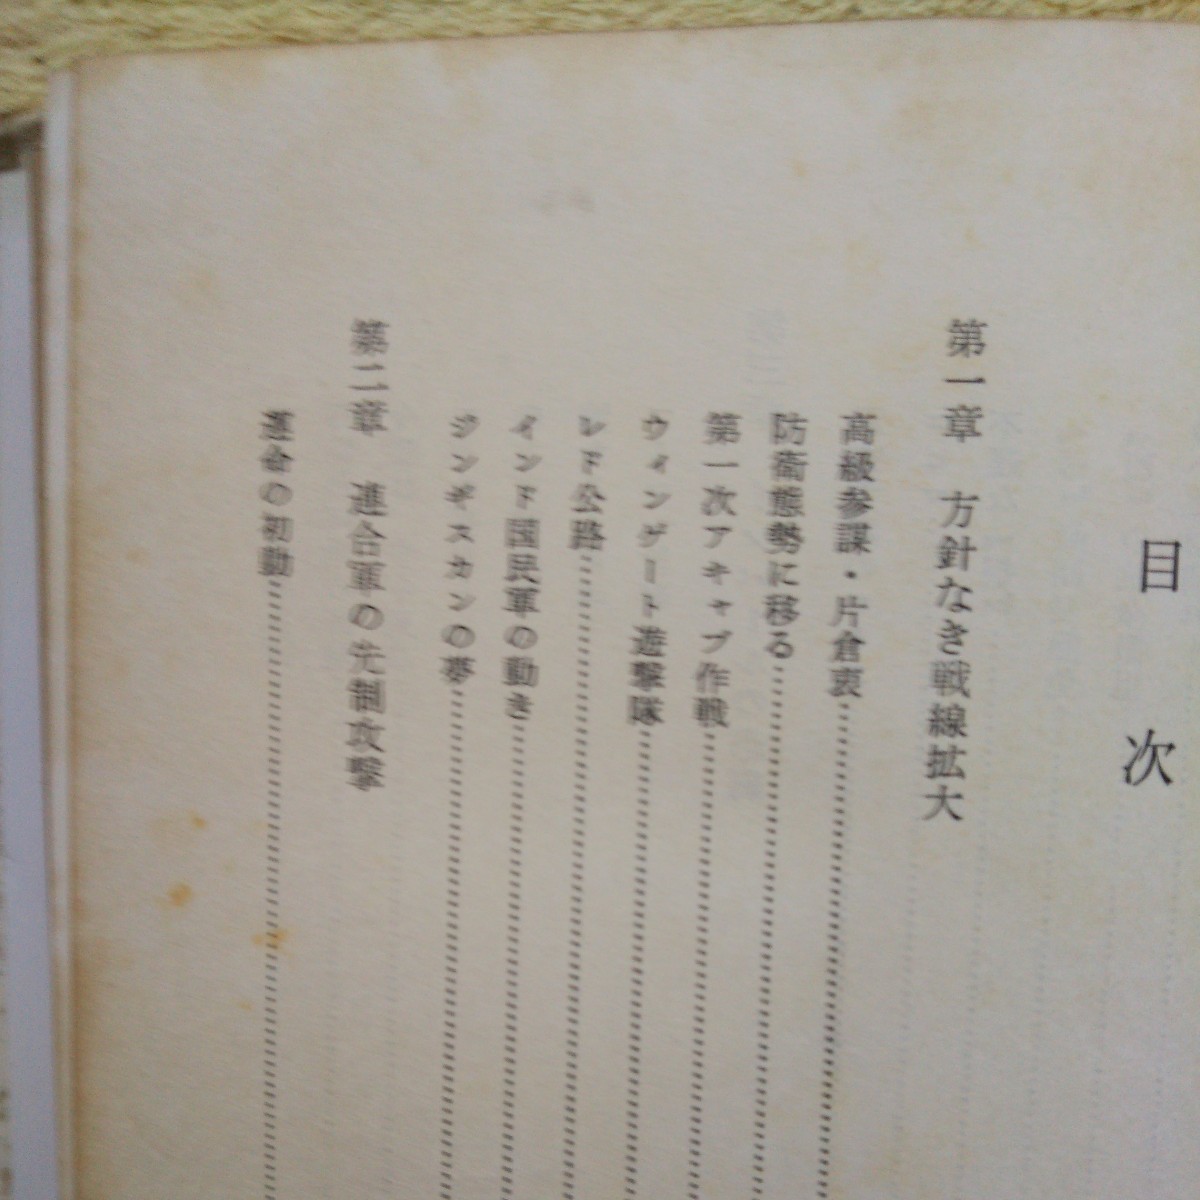 目次
第一章　方針なき戦線拡大
高級参謀・片倉衷
防衛態勢に移る
第一次アキャブ作戦
ウィンゲート遊撃隊
レド公路
インド国民軍の動き
ジンギスカンの夢
第二章　連合軍の先制攻撃
運命の初動